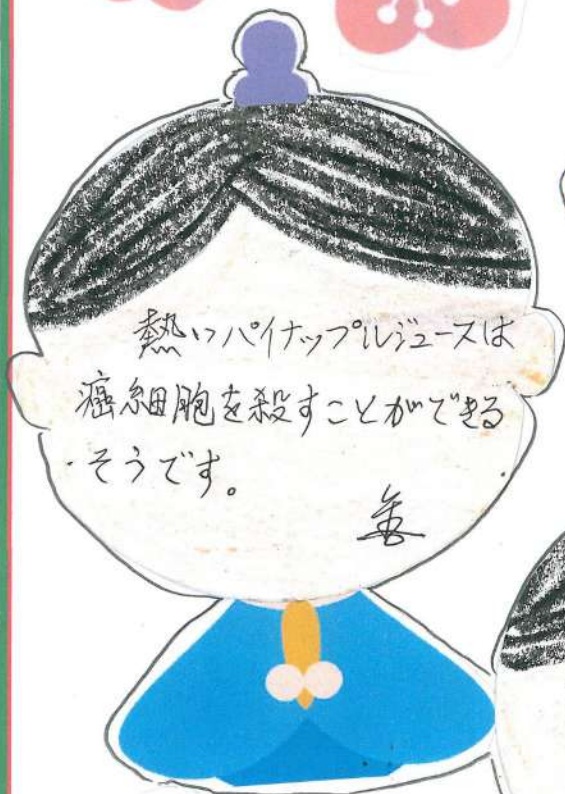 熱いパイナップルジュースは
癌細胞を殺すことができる
そうです。